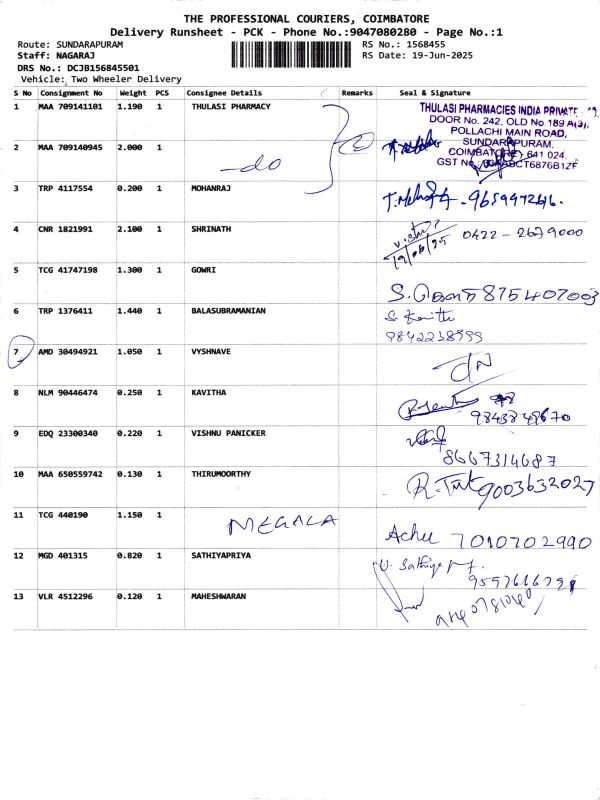 THE PROFESSIONAL COURIERS, COIMBATORE
Delivery Runsheet - PCK - Phone No.:9047080280 - Page No.:1
Route: SUNDARAPURAM RS No.: 1568455
Staff: NAGARAJ RS Date: 19-Jun-2025
DRS No.: DCJB156845501
Vehicle: Two Wheeler Delivery
S No Consignment No Weight PCS Consignee Details Remarks Seal & Signature
1 MAA 709141101 1.190 1 THULASI PHARMACY
THULASI PHARMACIES INDIA PRIVATE
DOOR No. 242, OLD No 189 A(3),
POLLACHI MAIN ROAD,
SUNDARAPURAM,
COIMBATORE - 641 024
2 MAA 709140945 2.000 1 -do
3 TRP 4117554 0.200 1 MOHANRAJ
4 CNR 1821991 2.100 1 SHRINATH 0422-2679000
19/06/25
5 TCG 41747198 1.300 1 GOWRI
6 TRP 1376411 1.440 1 BALASUBRAMANIAN
7 AMD 30494921 1.050 1 VYSHNAVE
8 NLM 90446474 0.250 1 KAVITHA
9 EDQ 23300340 0.220 1 VISHNU PANICKER
8667314687
10 MAA 650559742 0.130 1 THIRUMOORTHY
9003632027
11 TCG 440190 1.150 1 MEGALA
7010702990
12 MGD 401315 0.820 1 SATHIYAPRIYA
13 VLR 4512296 0.120 1 MAHESHWARAN